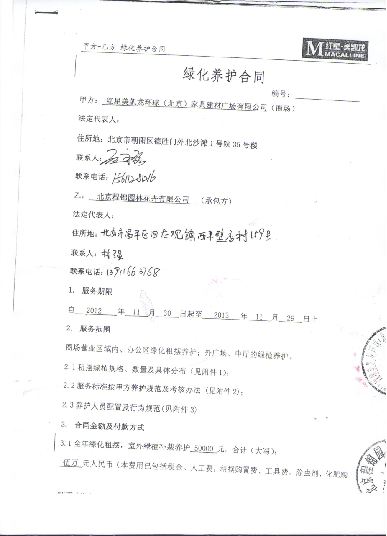 甲方-乙方 绿化养护合同
M 红星·美凯龙
MACALLINE
绿化养护合同
编号:
甲方: 红星美凯龙环球(北京)家具建材广场有限公司(商场)
法定代表人:
住所地: 北京市朝阳区德胜门外北沙滩1号院35号楼
联系人:
联系电话:
乙: 北京程翔园林花卉有限公司 (承包方)
法定代表人:
住所地: 北京市昌平区回龙观镇西半壁店村159号
联系人: 林强
联系电话:
1. 服务期限
自 2012 年 11 月 30 日起至 2013 年 11 月 29 日止
2. 服务范围
商场营业区域内、办公区绿化租摆养护; 外广场、中厅的绿植养护。
2.1 租摆绿植规格、数量及具体分布(见附件1);
2.2 服务标准按甲方养护规范及考核办法(见附件2);
2.3 养护人员配置及行为规范(见附件3)
3. 合同金额及付款方式
3.1 全年绿化租摆, 室外绿植 养护 50000 元, 合计(大写):
伍万 元人民币(本费用已包括税金、人工费、植物购置费、工具费、除虫剂、化肥购